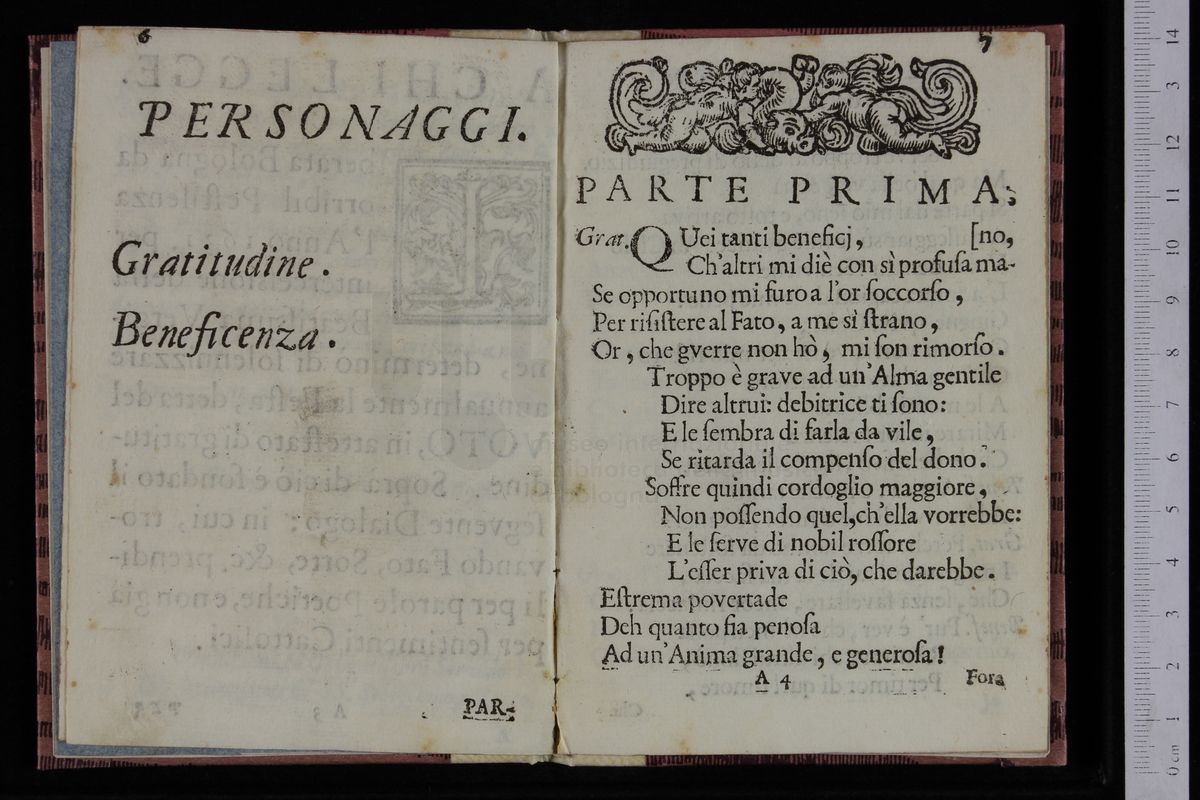 6
PERSONAGGI.
Gratitudine.
Beneficenza.
PAR-
7
PARTE PRIMA;
Grat. QUei tanti beneficj, [no,
Ch'altri mi diè con sì profuſa ma-
Se opportuno mi furo a l'or ſoccorſo,
Per riſiſtere al Fato, a me sì ſtrano,
Or, che gverre non hò, mi ſon rimorſo.
Troppo è grave ad un'Alma gentile
Dire altrui: debitrice ti ſono:
E le ſembra di farla da vile,
Se ritarda il compenſo del dono.
Soffre quindi cordoglio maggiore,
Non poſſendo quel,ch'ella vorrebbe:
E le ſerve di nobil roſſore
L'eſſer priva di ciò, che darebbe.
Eſtrema povertade
Deh quanto fia penoſa
Ad un'Anima grande, e generoſa!
A 4 Fora